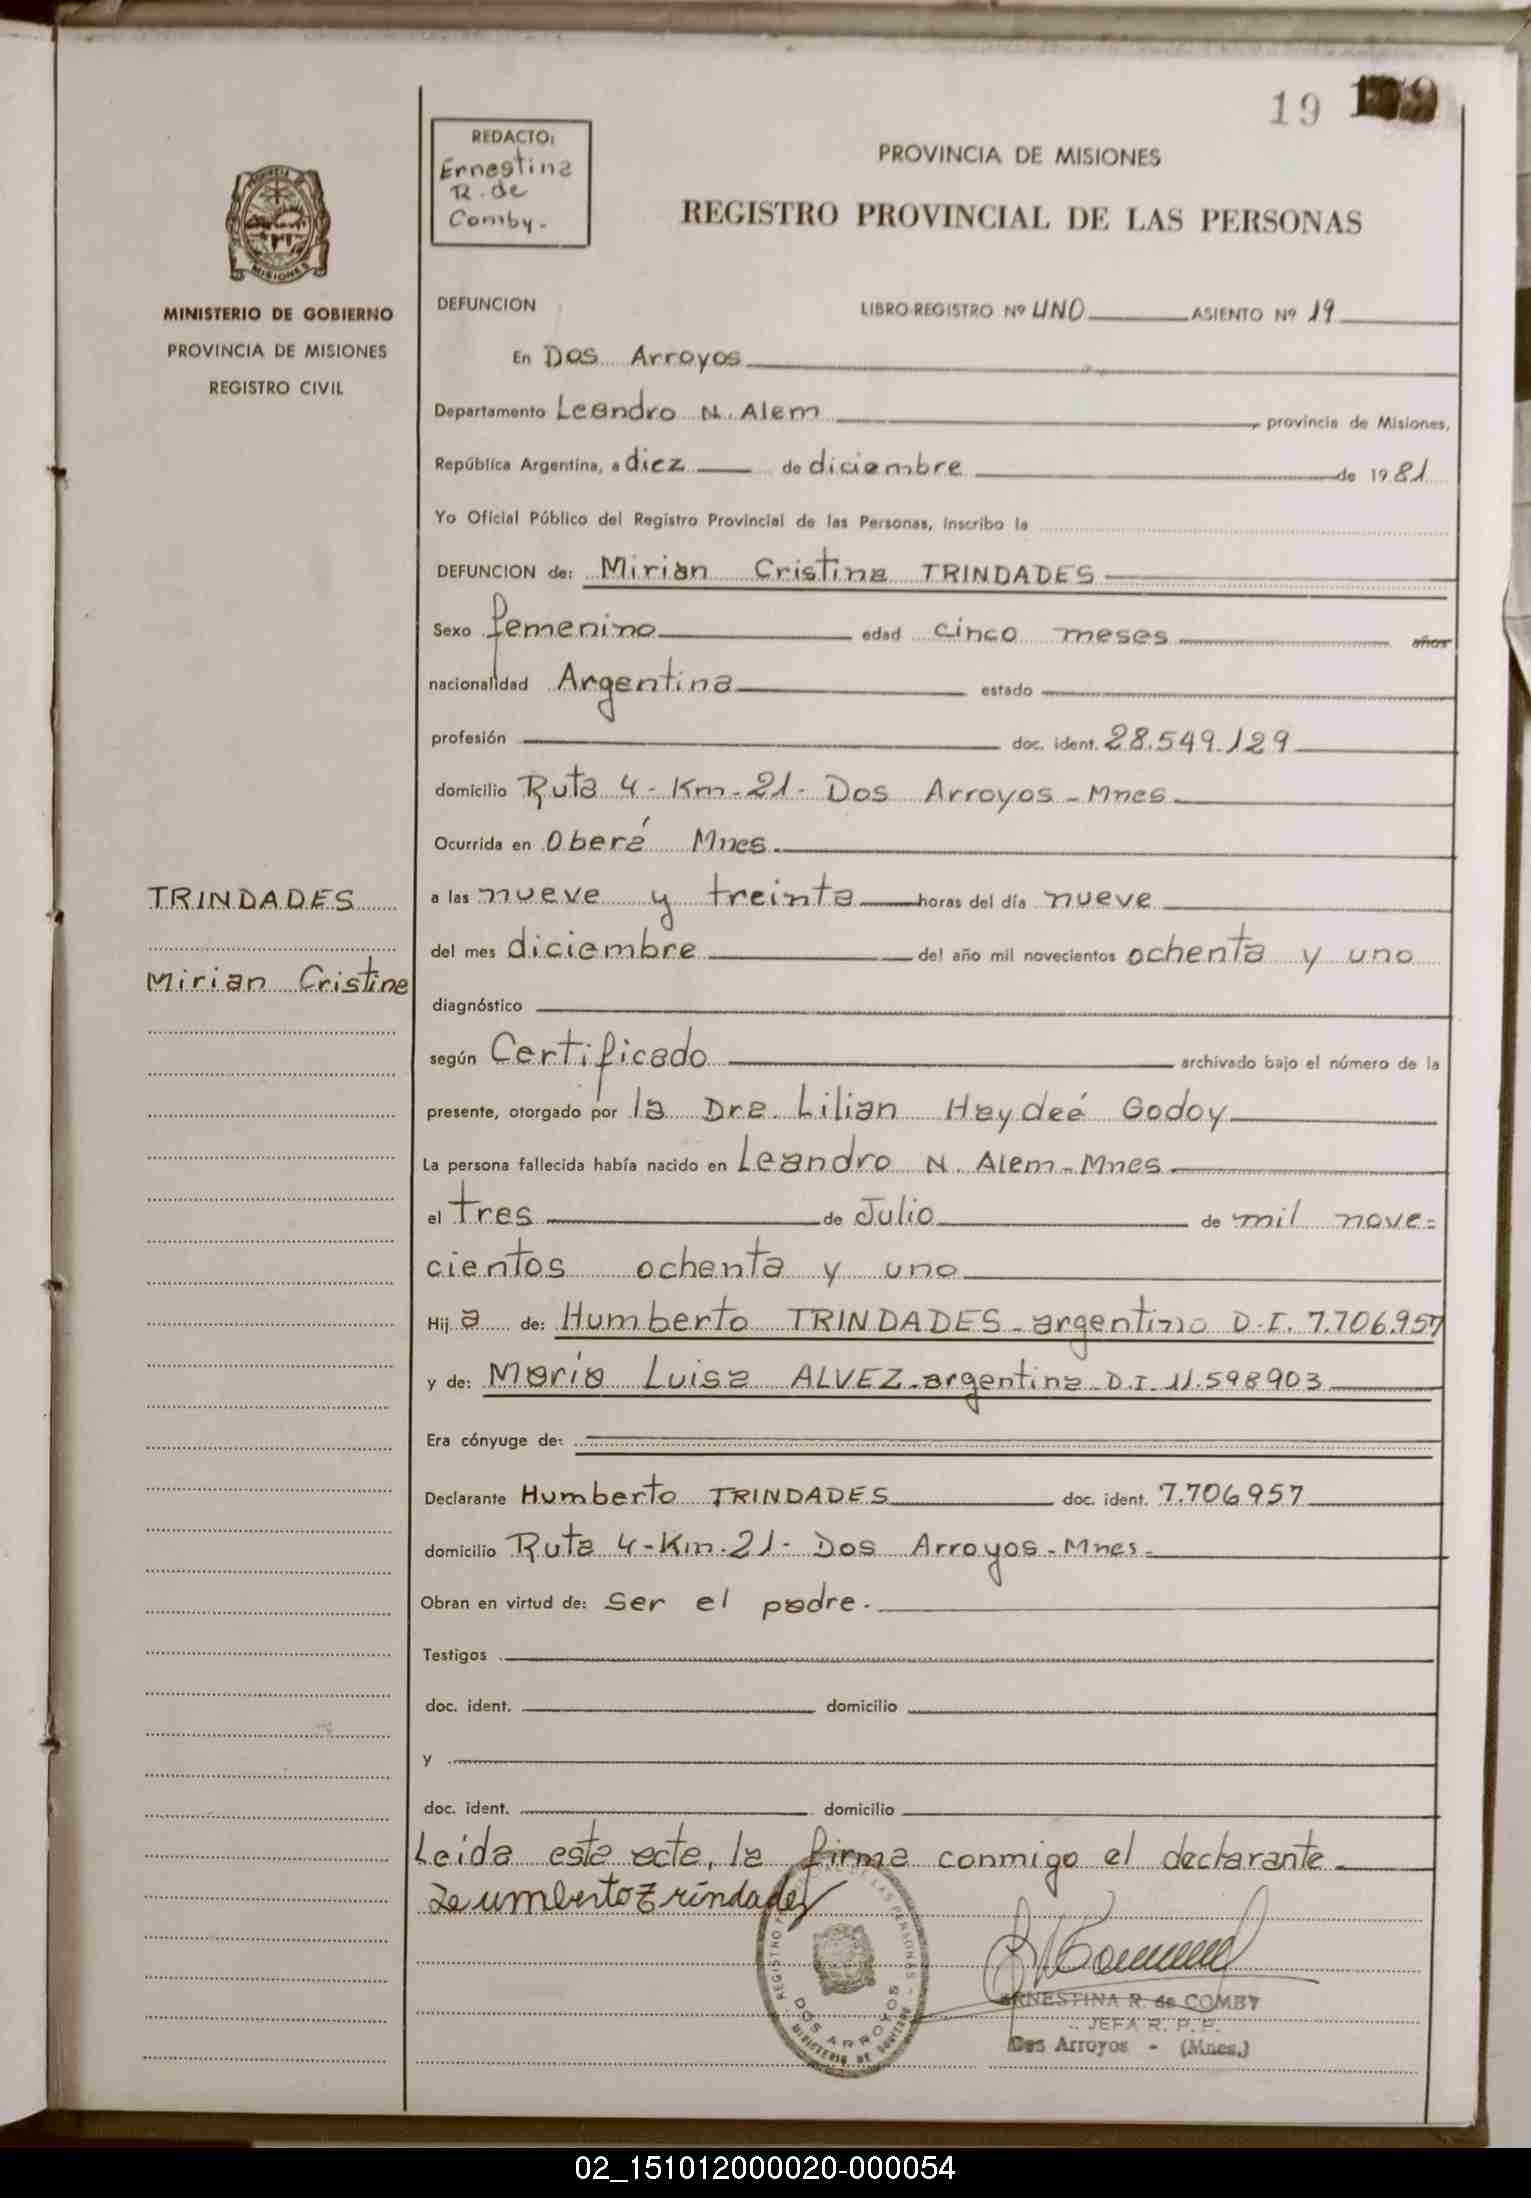 19
REDACTO:
Ernestina
R. de
Comby.-
PROVINCIA DE MISIONES
REGISTRO PROVINCIAL DE LAS PERSONAS
MISIONES
MINISTERIO DE GOBIERNO
PROVINCIA DE MISIONES
REGISTRO CIVIL
DEFUNCION LIBRO-REGISTRO Nº UNO ASIENTO Nº 19
En Dos Arroyos
Departamento Leandro N. Alem, provincia de Misiones,
República Argentina, a diez de diciembre de 1981
Yo Oficial Público del Registro Provincial de las Personas, inscribo la
DEFUNCION de: Mirian Cristina TRINDADES
Sexo femenino edad cinco meses años
nacionalidad Argentina estado
profesión doc. ident. 28.549.129
domicilio Ruta 4 - Km - 21 - Dos Arroyos - Mnes
Ocurrida en Oberá Mnes.
TRINDADES
Mirian Cristina
a las nueve y treinta horas del día nueve
del mes diciembre del año mil novecientos ochenta y uno
diagnóstico
según Certificado archivado bajo el número de la
presente, otorgado por la Dra. Lilian Haydeé Godoy
La persona fallecida había nacido en Leandro N. Alem - Mnes
el tres de Julio de mil nove=
cientos ochenta y uno
Hija de: Humberto TRINDADES - argentino D.I. 7.706.957
y de: María Luisa ALVEZ - argentina D.I. 11.598903
Era cónyuge de:
Declarante Humberto TRINDADES doc. ident. 7.706957
domicilio Ruta 4 - Km. 21 - Dos Arroyos - Mnes -
Obran en virtud de: ser el padre.
Testigos
doc. ident. domicilio
y
doc. ident. domicilio
Leída esta acta, la firma conmigo el declarante
Humberto Trindades
DOS ARROYOS
MINISTERIO DE GOBIERNO
ERNESTINA R. de COMBY
JEFA R. P. P.
Dos Arroyos - (Mnes.)
02_151012000020-000054